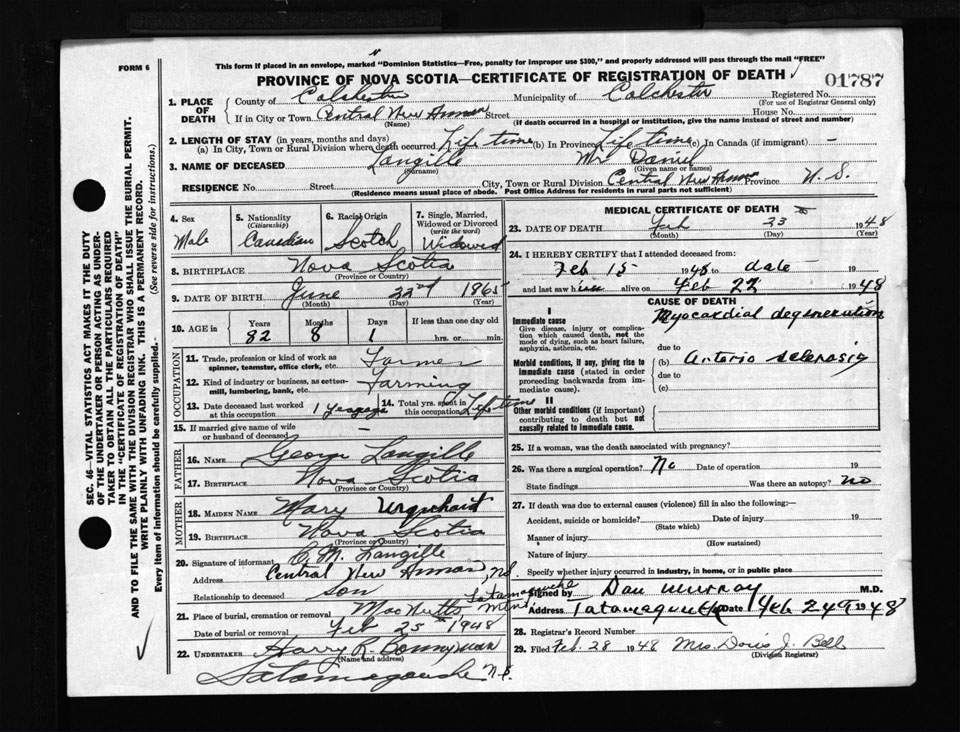 FORM 6
This form if placed in an envelope, marked "Dominion Statistics—Free, penalty for improper use $300," and properly addressed will pass through the mail "FREE"
PROVINCE OF NOVA SCOTIA—CERTIFICATE OF REGISTRATION OF DEATH
01787
1. PLACE OF DEATH
County of Colchester Municipality of Colchester Registered No.
(For use of Registrar General only)
If in City or Town Central New Annan Street House No.
(Name) (If death occurred in a hospital or institution, give the name instead of street and number)
2. LENGTH OF STAY (in years, months and days)
(a) In City, Town or Rural Division where death occurred Life time (b) In Province Life time (c) In Canada (if immigrant) -
3. NAME OF DECEASED Langille Daniel
(Surname) (Given name or names)
RESIDENCE No. Street City, Town or Rural Division Central New Annan Province N. S.
(Residence means usual place of abode. Post Office Address for residents in rural parts not sufficient)
4. Sex Male
5. Nationality (Citizenship) Canadian
6. Racial Origin Scotch
7. Single, Married, Widowed or Divorced (write the word) Widowed
8. BIRTHPLACE Nova Scotia
(Province or Country)
9. DATE OF BIRTH June 22nd 1865
(Month) (Day) (Year)
10. AGE in Years Months Days If less than one day old
82 8 1 hrs. or min.
OCCUPATION
11. Trade, profession or kind of work as spinner, teamster, office clerk, etc. Farmer
12. Kind of industry or business, as cotton-mill, lumbering, bank, etc. Farming
13. Date deceased last worked at this occupation 1
14. Total yrs. spent in this occupation Lifetime
15. If married give name of wife or husband of deceased -
FATHER
16. NAME George Langille
17. BIRTHPLACE Nova Scotia
(Province or Country)
MOTHER
18. MAIDEN NAME Mary Urquhart
19. BIRTHPLACE Nova Scotia
(Province or Country)
20. Signature of informant C. M. Langille
Address Central New Annan, N.S.
Relationship to deceased son
21. Place of burial, cremation or removal MacNutts
Date of burial or removal Feb 25th 1948
22. UNDERTAKER Harry R. Bonnyman
(Name and address)
Tatamagouche N.S.
MEDICAL CERTIFICATE OF DEATH
23. DATE OF DEATH Feb 23 1948
(Month) (Day) (Year)
24. I HEREBY CERTIFY that I attended deceased from:
Feb 15 1948 to date 19
and last saw him alive on Feb 22 1948
CAUSE OF DEATH
I
Immediate cause
Give disease, injury or complication which caused death, not the mode of dying, such as heart failure, asphyxia, asthenia, etc.
Myocardial degeneration
due to
Morbid conditions, if any, giving rise to immediate cause (stated in order proceeding backwards from immediate cause).
(b) Arterio sclerosis
due to
(c)
II
Other morbid conditions (if important) contributing to death but not causally related to immediate cause.
25. If a woman, was the death associated with pregnancy?
26. Was there a surgical operation? No Date of operation 19
State findings Was there an autopsy? No
27. If death was due to external causes (violence) fill in also the following:—
Accident, suicide or homicide? Date of injury 19
(State which)
Manner of injury
(How sustained)
Nature of injury
Specify whether injury occurred in industry, in home, or in public place
Signed by Dan Murray M.D.
Address Tatamagouche Date Feb 24 1948
28. Registrar's Record Number
29. Filed Feb. 28 1948 Mrs. Doris J. Bell
(Division Registrar)
SEC. 46—VITAL STATISTICS ACT MAKES IT THE DUTY OF THE UNDERTAKER OR PERSON ACTING AS UNDERTAKER TO OBTAIN ALL THE PARTICULARS REQUIRED IN THE "CERTIFICATE OF REGISTRATION OF DEATH" AND TO FILE THE SAME WITH THE DIVISION REGISTRAR WHO SHALL ISSUE THE BURIAL PERMIT.
WRITE PLAINLY WITH UNFADING INK. THIS IS A PERMANENT RECORD.
Every item of information should be carefully supplied. (See reverse side for instructions.)